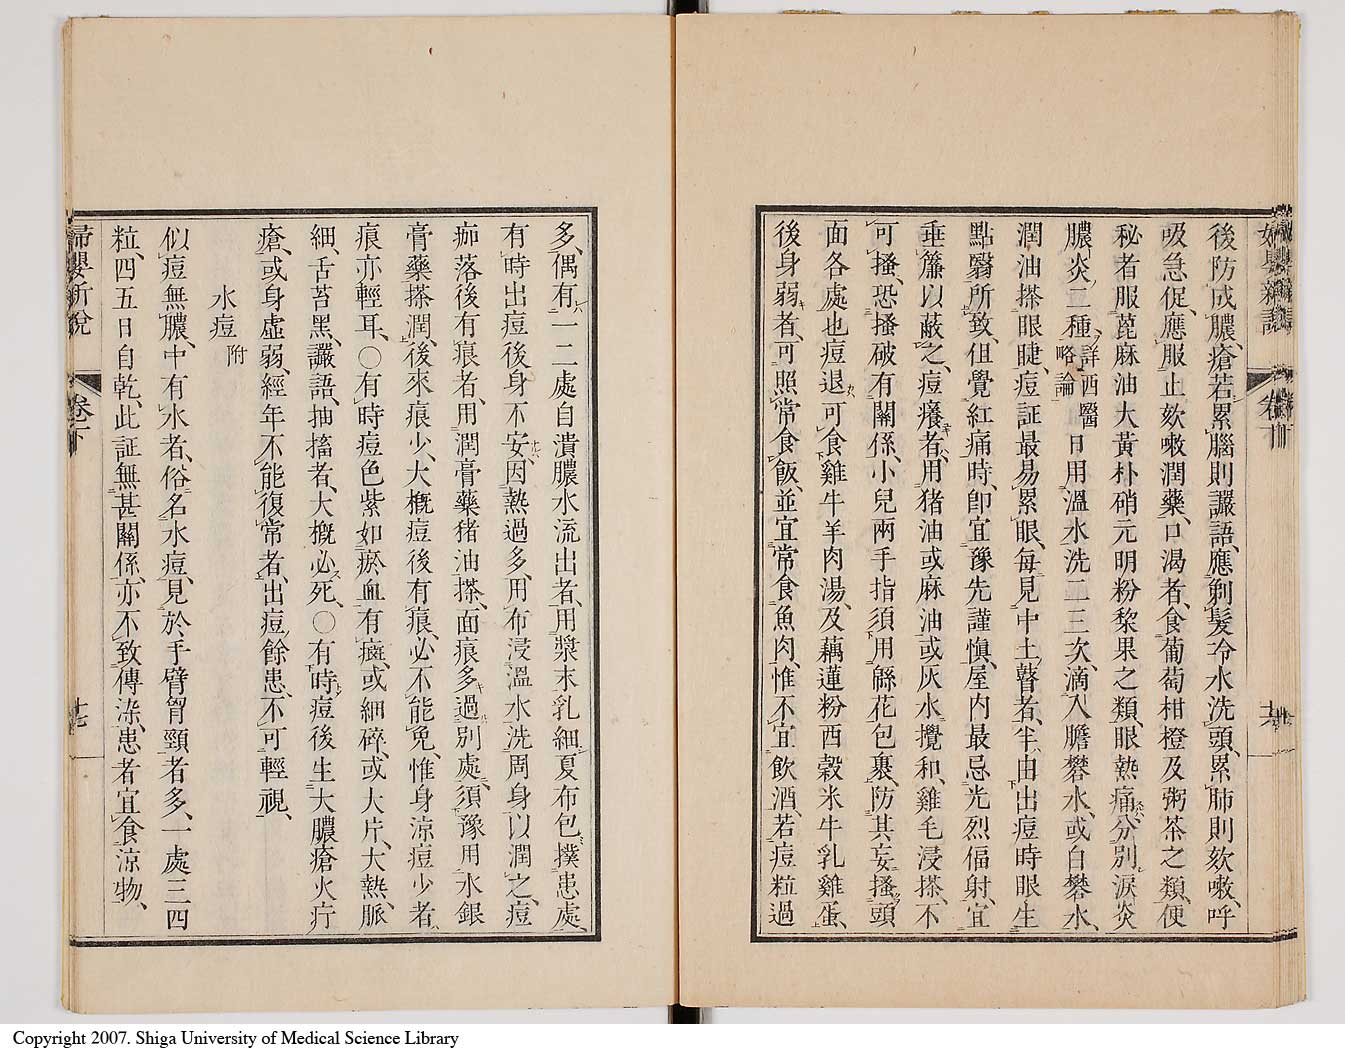 後防成膿瘡、若累腦則讝語、應剃髮冷水洗頭、累肺則欬嗽、呼
吸急促、應服止欬嗽潤藥、口渴者、食葡萄柑橙及粥茶之類、便
秘者服蓖麻油大黃朴硝元明粉棃果之類、眼熱痛分別淚炎
膿炎二種、詳西醫略論日用溫水洗二三次、滴入膽礬水、或白礬水、
潤油搽眼睫、痘証最易累眼、每見中土瞽者、半由出痘時眼生
點翳所致、但覺紅痛時、卽宜豫先謹愼、屋內最忌光烈偪射、宜
垂簾以蔽之、痘癢者、用猪油或麻油或灰水攪和、雞毛浸搽、不
可搔、恐搔破有關係、小兒兩手指須用緜花包裹、防其妄搔頭
面各處也痘退可食雞牛羊肉湯、及藕蓮粉西穀米牛乳雞蛋、
後身弱者、可照常食飯、並宜常食魚肉、惟不宜飲酒、若痘粒過
多、偶有一二處自潰膿水流出者、用漿末乳細、夏布包撲患處、
有時出痘後身不安、因熱過多、用布浸溫水洗周身以潤之、痘
痂落後有痕者、用潤膏藥猪油搽、面痕多過別處、須豫用水銀
膏藥搽潤、後來痕少、大槪痘後有痕、必不能免、惟身涼痘少者、
痕亦輕耳、〇有時痘色紫如瘀血有癍、或細碎、或大片、大熱、脈
細、舌苔黑、讝語、抽搐者、大槪必死、〇有時痘後生大膿瘡火疔
瘡、或身虛弱、經年不能復常者、出痘餘患、不可輕視、
水痘 附
似痘無膿、中有水者、俗名水痘、見於手臂胷頸者多、一處三四
粒、四五日自乾、此証無甚關係、亦不致傳染、患者宜食涼物、
卷下
十七
Copyright 2007. Shiga University of Medical Science Library